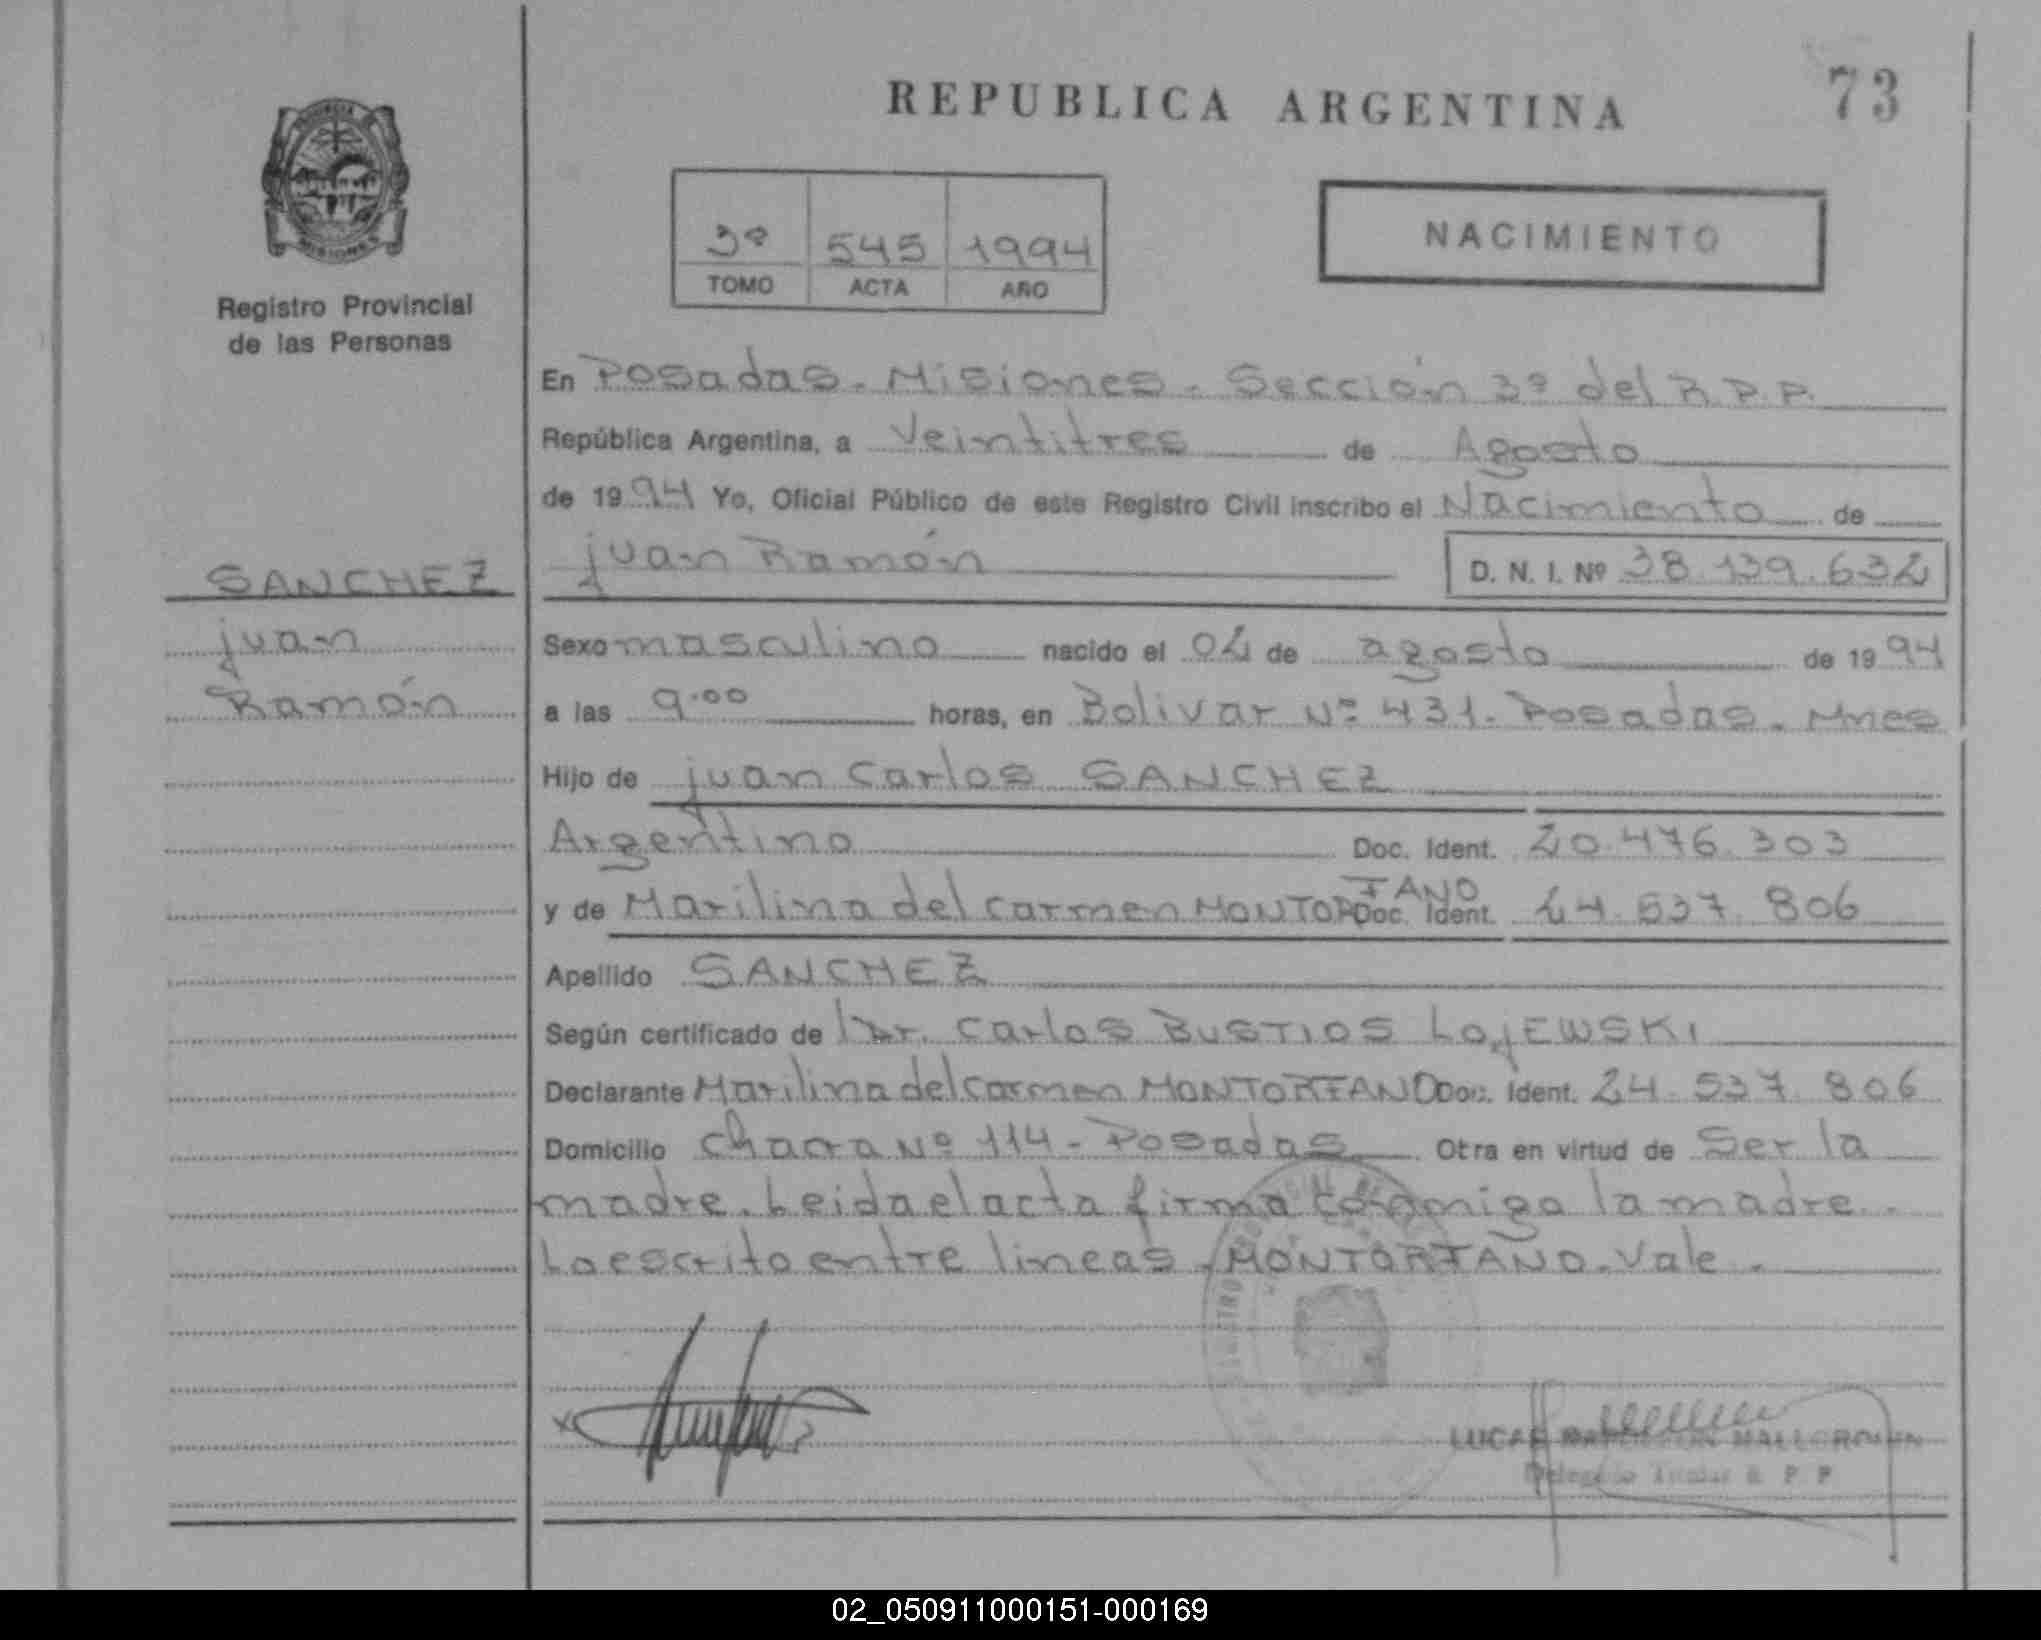 REPUBLICA ARGENTINA
73
PROVINCIA
MISIONES
Registro Provincial
de las Personas
3º 545 1994
TOMO ACTA AÑO
NACIMIENTO
En Posadas. Misiones. Sección 3ª del R.P.P.
República Argentina, a Veintitres de Agosto
de 1994 Yo, Oficial Público de este Registro Civil inscribo el Nacimiento de
SANCHEZ
juan
Ramón
juan Ramón D. N. I. Nº 38.139.632
Sexo masculino nacido el 02 de agosto de 1994
a las 9.00 horas, en Bolivar Nº 431. Posadas. Mnes
Hijo de juan Carlos SANCHEZ
Argentino Doc. Ident. 20.476.303
FANO
y de Marilina del Carmen MONTOR Doc. Ident. 24.537.806
Apellido SANCHEZ
Según certificado de Dr. Carlos BUSTIOS LOjEWSKI
Declarante Marilina del Carmen MONTORFANO Doc. Ident. 24.537.806
Domicilio Chacra Nº 114 - Posadas Otra en virtud de Ser la
madre. Leida el acta firma conmigo la madre.
Lo escrito entre lineas. MONTORFANO. Vale.
LUCAS MALLORQUIN
Delegado Titular R. P. P.
02_050911000151-000169